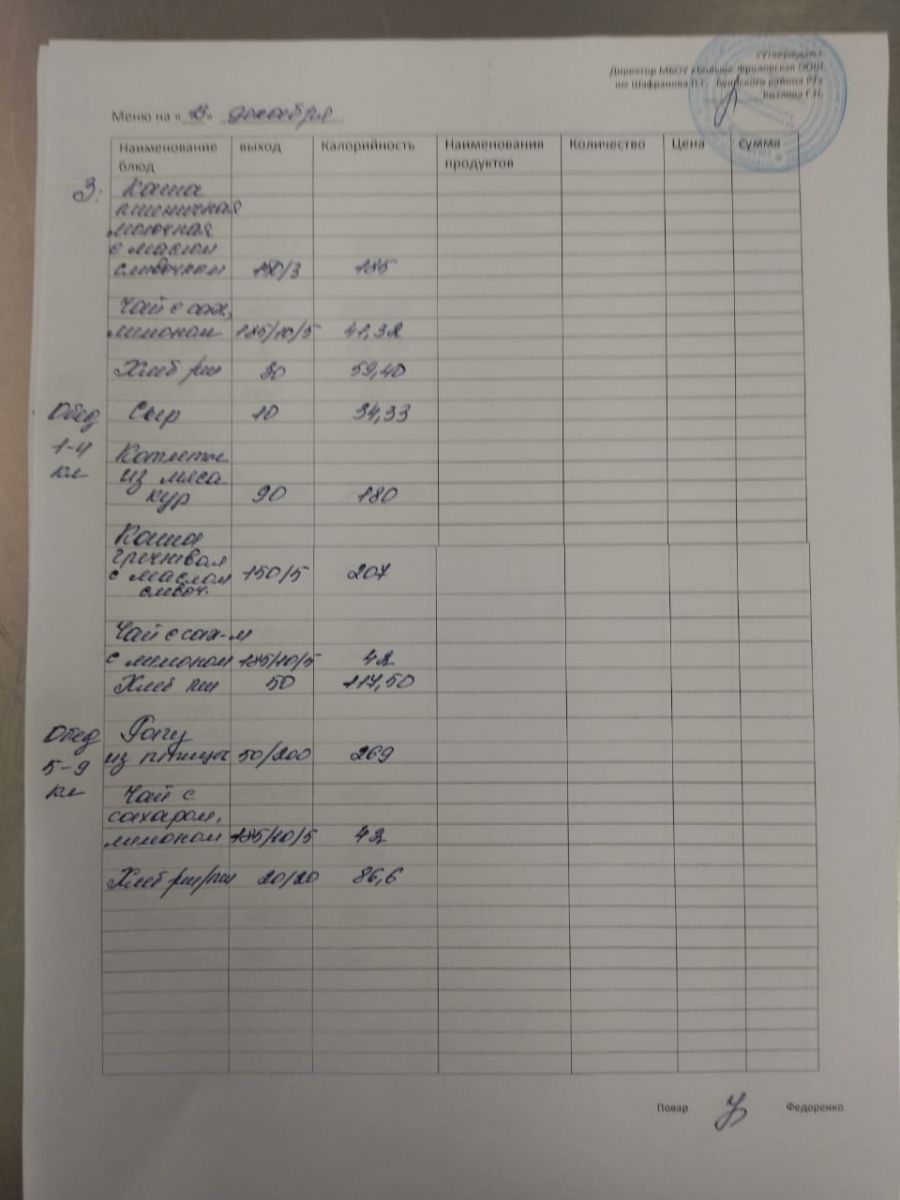 «Утверждаю»
Директор МБОУ «Больше-Фроловская ООШ
им Шафранова П.Г. Буинского района РТ»
Козлова Г.Н.
Меню на « 13 » декабря
Наименование блюд выход Калорийность Наименования продуктов Количество Цена Сумма
З. Каша
пшеничная
молочная
с маслом
сливочным 150/3 185
Чай с сах,
лимоном 185/10/5 41,32
Хлеб рж 30 59,40
Обед Сыр 10 34,33
1-4 Котлеты
кл из мяса
кур 90 180
Каша
гречневая
с маслом 150/5 207
сливоч.
Чай с сах-м
с лимоном 185/10/5 42
Хлеб пш 50 117,50
Обед Рагу
из птицы 50/200 269
5-9
кл Чай с
сахаром,
лимоном 185/10/5 42
Хлеб рж/пш 20/20 86,6
Повар Федоренко